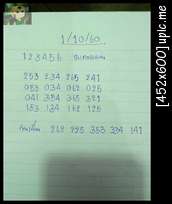 1/10/60
123456
253 234 265 241
053 034 062 025
041 354 365 321
153 134 162 125
262 225 353 334 141
[452x600] upic.me